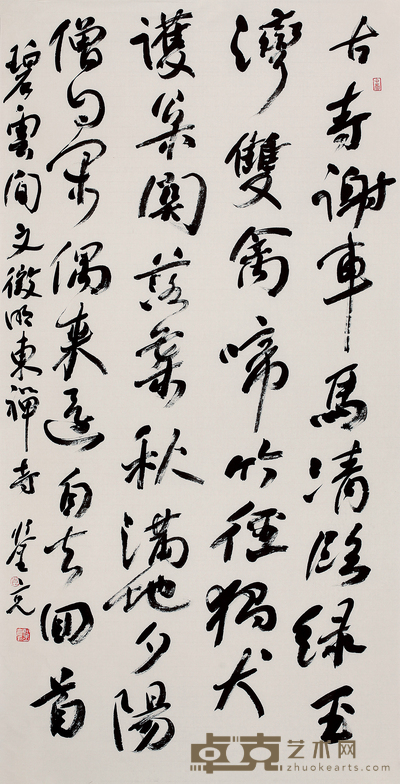 古寺謝車馬清臨緑玉
灣雙禽啼竹徑獨犬
護柴關落葉秋滿地夕陽
僧自閑偶來還自去回首
碧雲间文徵明東禪寺
卓克艺术网
zhuokearts.com